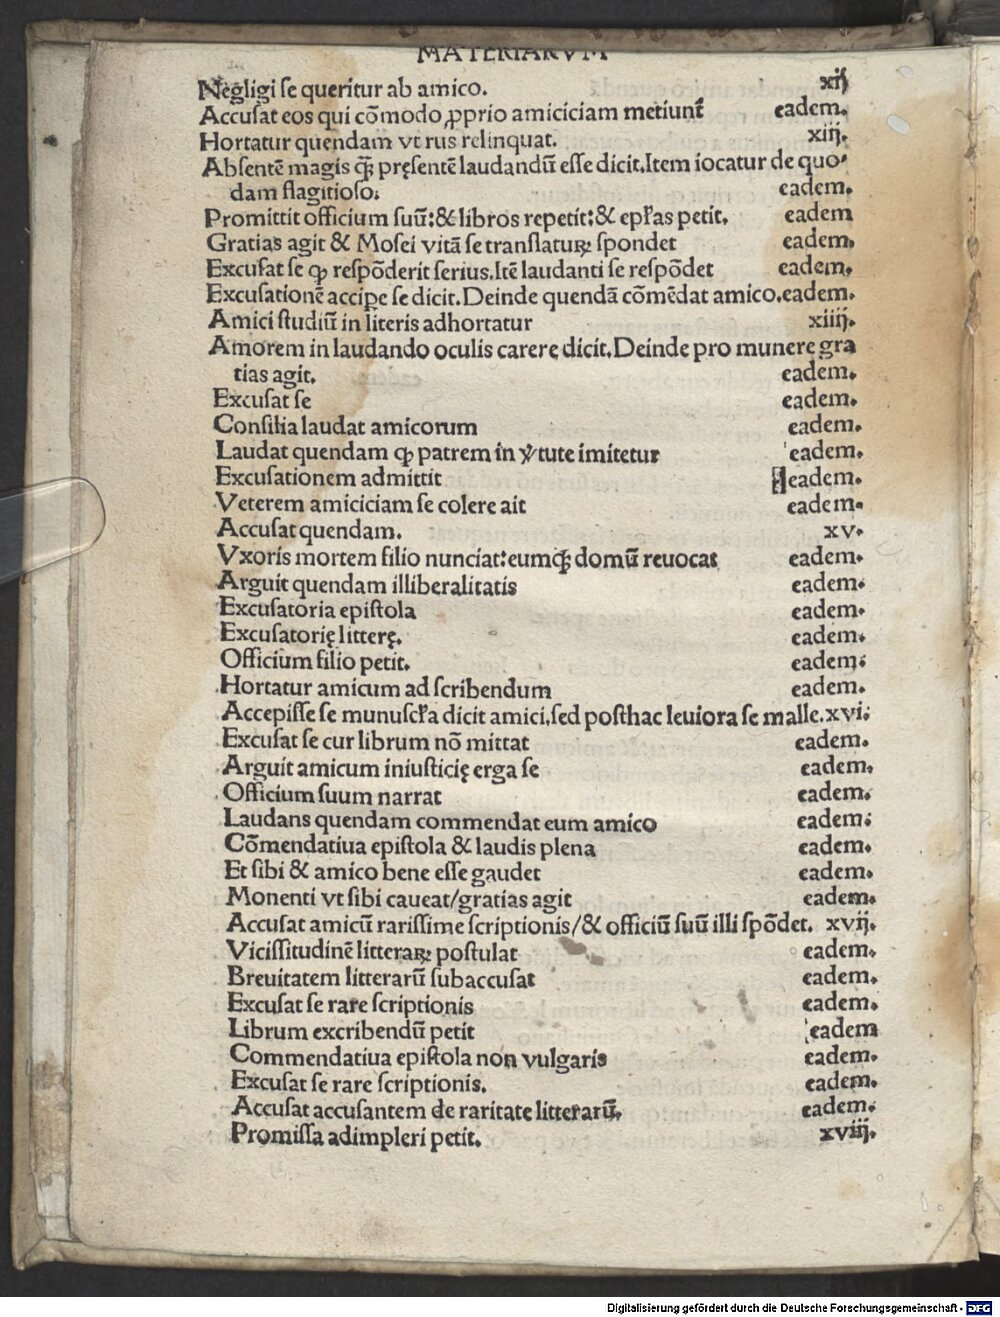 MATERIARVM
Negligi se queritur ab amico. xij
Accusat eos qui cōmodo ꝓprio amiciciam metiunt᷑ eadem.
Hortatur quendam vt rus relinquat. xiij.
Absentē magis ꝙ̄ pręsentē laudandū esse dicit.Item iocatur de quo-
dam flagitioso. eadem.
Promittit officium suū:& libros repetit:& ep̄ras petit. eadem
Gratias agit & Mosei vitā se translaturꝝ spondet eadem.
Excusat se ꝙ respōderit serius.Itē laudanti se respōdet eadem.
Excusationē accipe se dicit.Deinde quendā cōmēdat amico.eadem.
Amici studiū in literis adhortatur xiiij.
Amorem in laudando oculis carere dicit.Deinde pro munere gra
tias agit. eadem.
Excusat se eadem.
Consilia laudat amicorum eadem.
Laudat quendam ꝙ patrem in v̓tute imitetur eadem.
Excusationem admittit eadem.
Veterem amiciciam se colere ait eadem.
Accusat quendam. xv.
Vxoris mortem filio nunciat:eumꝙ̄ domū reuocat eadem.
Arguit quendam illiberalitatis eadem.
Excusatoria epistola eadem.
Excusatorię litterę. eadem.
Officium filio petit. eadem:
Hortatur amicum ad scribendum eadem.
Accepisse se munuscl̓a dicit amici.sed posthac leuiora se malle.xvi:
Excusat se cur librum nō mittat eadem.
Arguit amicum iniusticię erga se eadem.
Officium suum narrat eadem.
Laudans quendam commendat eum amico eadem:
Cōmendatiua epistola & laudis plena eadem.
Et sibi & amico bene esse gaudet eadem.
Monenti vt sibi caueat/gratias agit eadem.
Accusat amicū rarissime scriptionis/& officiū suū illi spōdet. xvij.
Vicissitudinē litteraꝝ postulat eadem.
Breuitatem litterarū subaccusat eadem.
Excusat se rare scriptionis eadem.
Librum excribendū petit eadem
Commendatiua epistola non vulgaris eadem.
Excusat se rare scriptionis. eadem.
Accusat accusantem de raritate litterarū. eadem.
Promissa adimpleri petit. xviij.
Digitalisierung gefördert durch die Deutsche Forschungsgemeinschaft - DFG